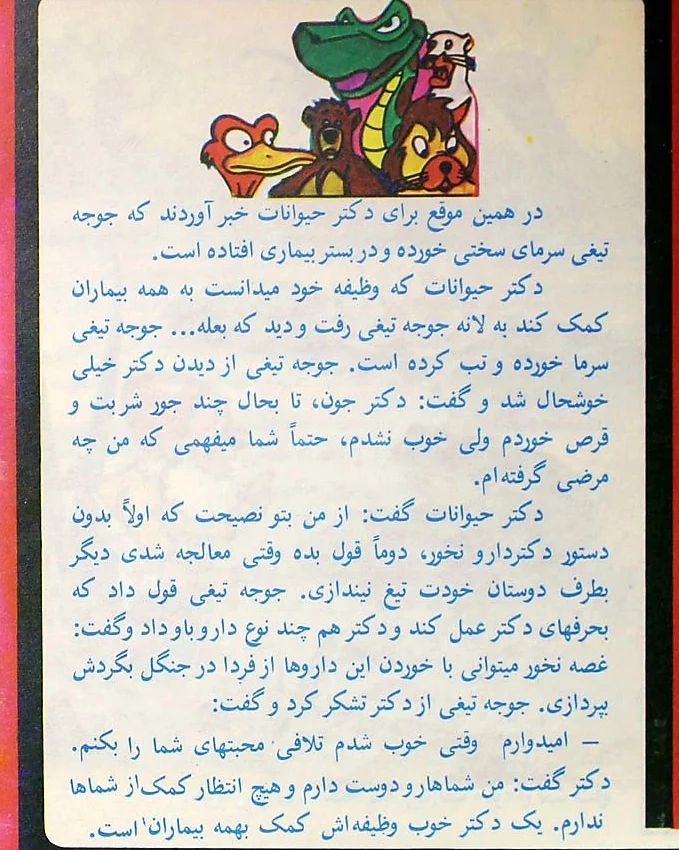 در همین موقع برای دکتر حیوانات خبر آوردند که جوجه
تیغی سرمای سختی خورده و در بستر بیماری افتاده است.
دکتر حیوانات که وظیفه خود میدانست به همه بیماران
کمک کند به لانه جوجه تیغی رفت و دید که بعله... جوجه تیغی
سرما خورده و تب کرده است. جوجه تیغی از دیدن دکتر خیلی
خوشحال شد و گفت: دکتر جون، تا بحال چند جور شربت و
قرص خوردم ولی خوب نشدم، حتماً شما میفهمی که من چه
مرضی گرفته‌ام.
دکتر حیوانات گفت: از من بتو نصیحت که اولاً بدون
دستور دکتر دارو نخور، دوماً قول بده وقتی معالجه شدی دیگر
بطرف دوستان خودت تیغ نیندازی. جوجه تیغی قول داد که
بحرفهای دکتر عمل کند و دکتر هم چند نوع دارو باو داد و گفت:
غصه نخور میتوانی با خوردن این داروها از فردا در جنگل بگردش
بپردازی. جوجه تیغی از دکتر تشکر کرد و گفت:
– امیدوارم وقتی خوب شدم تلافی محبتهای شما را بکنم.
دکتر گفت: من شماهارو دوست دارم و هیچ انتظار کمک از شماها
ندارم. یک دکتر خوب وظیفه‌اش کمک بهمه بیماران است.